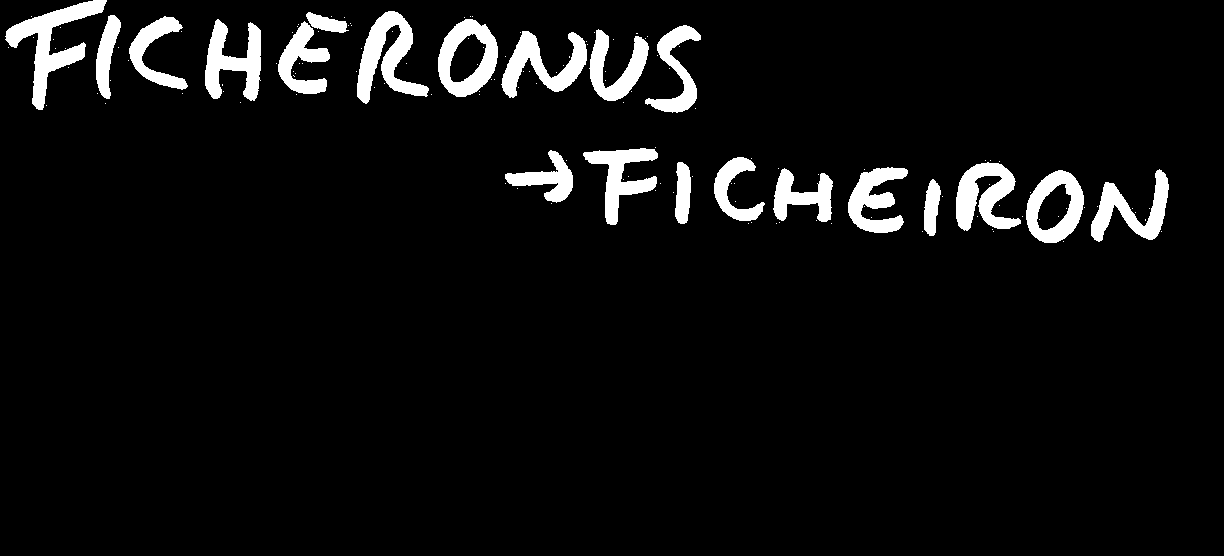 FICHERONUS
→FICHEIRON